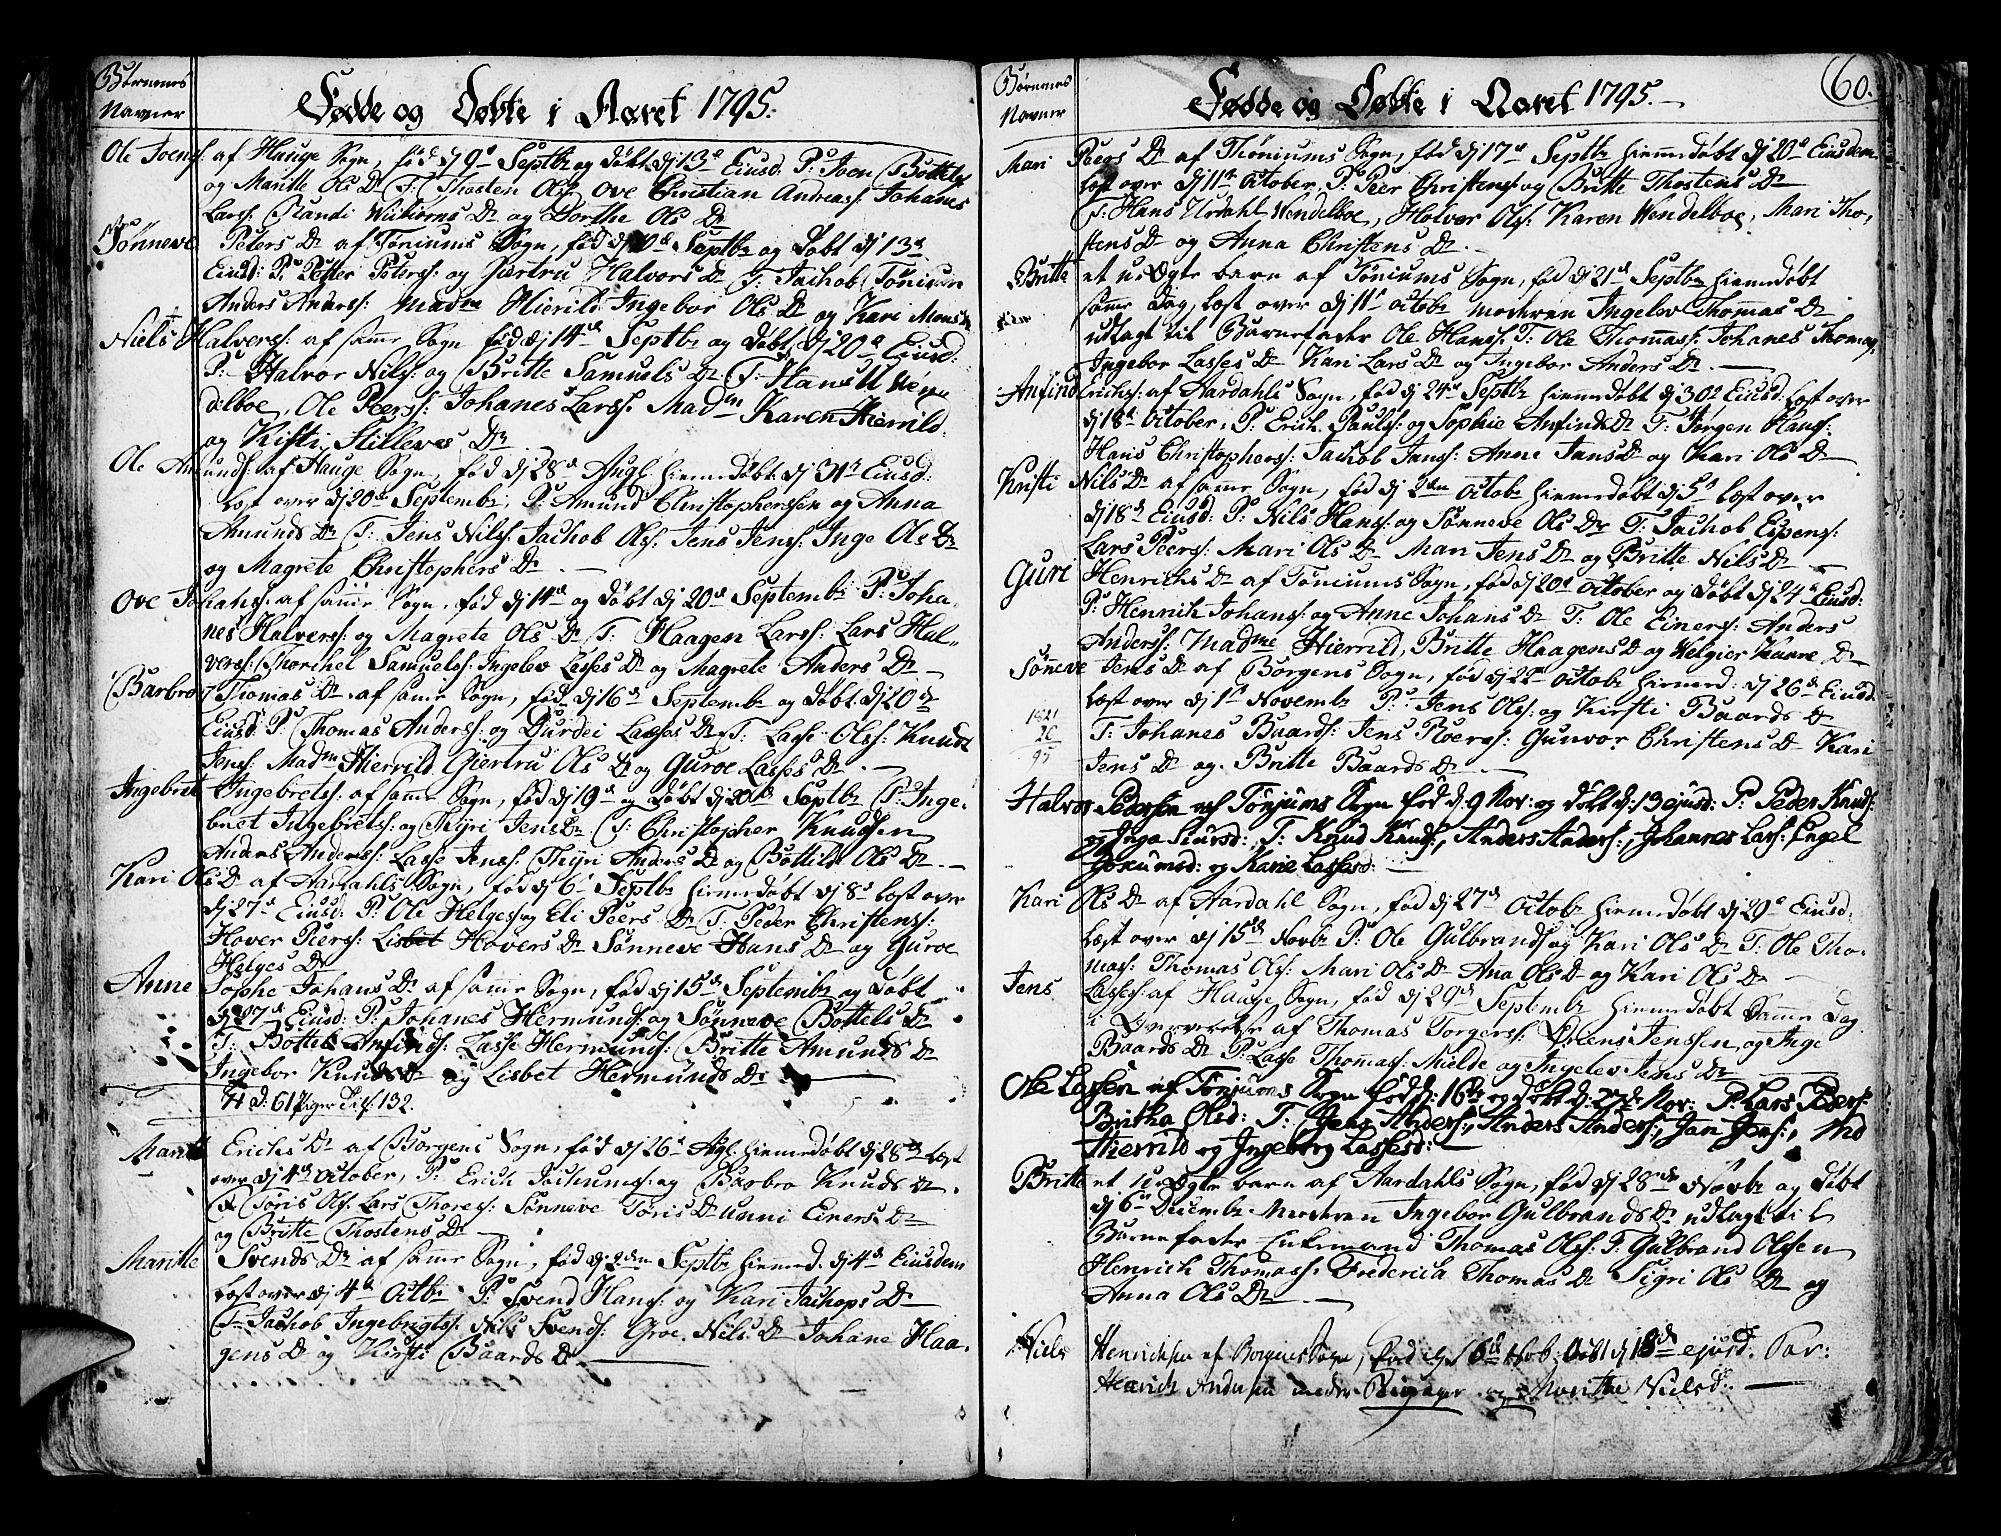 Børnenes
Navner
Fødde og Døbte i Aaret 1795.
Ole Joens: af Hauge Sogn, fød dj 9de Septbr og døbt dj 13de Eiusd: P: Joen Bottels:
og Maritte Ols Dr T: Thosten Ols: Ove Christian Andreas: Johanes
Lars: Randi Ols Dr og Dorthe Ols Dr
Sønneve Peters Dr af Tøniums Sogn, fød dj 10de Septbr og døbt dj 13de
Eiusd: P: Petter Peters: og Giertru Halvors Dr T: Jachob Tønium
Anders Anders: Madme Hierrild Ingebor Ols Dr og Kari Mons Dr
Niels Halvers: af samme Sogn fød dj 14de Septbr og døbt dj 20de Eiusd:
P: Halvor Nils: og Britte Samuels Dr T: Hans U Wen
delboe, Ole Peers: Johanes Lars: Madm Karen Hierrild
og Kisti Stilleves Dr
Ole Amunds: af Hauge Sogn, fød dj 28de Augt: hiemedøbt dj 31te Eiusd:
læst over dj 20de Septembr, P: Amund Christophersen og Anna
Amunds Dr T: Jens Nils: Jachob Ols: Jens Jens: Inge Ols Dr
og Magrete Christophers Dr
Ove Johans: af samme Sogn, fød dj 14de og døbt dj 20de Septembr P: Joha,
nes Halvers: og Magrete Ols Dr T: Haagen Lars: Lars Hal-
vers: Thorchel Samuels: Ingelev Lasses Dr og Magrete Anders Dr
Barbro Thomas Dr af samme Sogn, fød dj 16de Septembr og døbt dj 20de
Eiusd: P: Thomas Anders: og Durdei Lasses Dr T: Lasse Ols: Knudt
Jens: Madm Hierrild Giertru Ols Dr og Guroe Lasses Dr
Ingebret Ingebrets: af samme Sogn, fød dj 19de og døbt dj 20de Septbr P: Inge,
bret Ingebrets: og Thyri Jens Dr T: Christopher Knudsen
Anders Anders: Lasse Jens: Thyri Anders Dr og Bottild Ols Dr
Kari Ols Dr af Aardahls Sogn, fød dj 6te Septbr hiemedøbt dj 8de læst over
dj 27de Eiusd: P: Ole Helges: og Eli Peers Dr T: Peder Christens:
Hover Peers: Lisbet Hovers Dr Sønneve Hans Dr og Guroe
Helges Dr
Anne Sophe Johans Dr af samme Sogn, fød dj 15de Septembr og døbt
dj 27de Eiusd: P: Johanes Hermunds: og Sønneve Bottels Dr
T: Bottel Anfinds: Lasse Hermunds: Britte Amunds Dr
Ingebor Knuds Dr og Lisbet Hermunds Dr
61 Piger 132.
Maritte Erichs Dr af Borgens Sogn, fød dj 26de hiemedøbt dj 28de læst
over dj 4de October, P: Erich Jachums: og Barbro Knuds Dr
T: Toris Ols: Lars Thores: Sønneve Toris Dr Unni Einers Dr
og Britte Thostens Dr
Maritte Svends Dr af samme Sogn, fød dj 2den Septbr hiemed. dj 4de Eiusdem
læst over dj 4de Octbr P: Svend Hans: og Kari Jachops Dr
T: Jachob Ingebrigts: Nils Svends: Groe Nils Dr Johane Haa-
gens Dr og Kirsti Baards Dr
60.
Børnenes
Navner
Fødde og Døbte i Aaret 1795.
Mari Peers Dr af Thøniums Sogn, fød dj 17de Septbr hiemedøbt dj 20de Eiusdem
læst over dj 11te October, P: Peer Christens: og Britte Thostens Dr
T: Hans Urdahl Wendelboe, Halvor Ols: Karen Wendelboe, Mari Tho,
stens Dr og Anna Christens Dr
Britte et uægte barn af Tøniums Sogn, fød dj 21de Septbr hiemedøbt
samme dag, læst over dj 11te Octobr moderen Ingelev Thommas Dr
udlagt til Barnefader Ole Hans: T: Ole Thommas: Johanes Thomas:
Ingebor Lasses Dr Kari Lars Dr og Ingebor Anders Dr
Anfind Erichs: af Aardahls Sogn, fød dj 24de Septbr hiemedøbt dj 30te Eiusd: læst over
dj 18de October, P: Erich Pauls: og Sophie Anfinds Dr T: Jørgen Hans:
Hans Christophers: Jachob Jans: Anne Jans Dr og Kari Ols Dr
Kristi Nils Dr af samme Sogn, fød dj 2den Octobr hiemedøbt dj 5te læst over
dj 18de Eiusd: P: Nils Hans: og Sønneve Ols Dr T: Jachob Espens:
Lars Peers: Mari Ols Dr Mari Jens Dr og Britte Nils Dr
Guri Henrichs Dr af Tøniums Sogn, fød dj 20de October og døbt dj 24de Eiusd:
P: Henrich Johans: og Anne Johans Dr T: Ole Einers: Anders
Anders: Madme Hierrild, Britte Haagens Dr og Kaare Dr
Søneve Jens Dr af Borgens Sogn, fød dj 22de Octobr hiemed: dj 26de Eiusd:
læst over dj 1te Novembr P: Jens Ols: og Kirsti Baards Dr
1821
T: Johanes Baards: Jens Peers: Gunvor Christens Dr Kari
Jens Dr og Britte Baards Dr
Halvor Pedersen af Tønjums Sogn fød d. 9 Nov: og døbt d: 13 ejusd: P: Peder Knuds:
og Inga Siursd: T: Knud Knuds:, Anders Anders:, Johannes Lars: Engel
Jokumsd: og Karie Lassesd:
Kari Ols Dr af Aardahl Sogn, fød dj 27de Octobr hiemedøbt dj 29de Eiusd:
læst over dj 15de Novbr P: Ole Gulbrands: og Kari Ols Dr T: Ole Tho-
mas: Thomas Ols: Mari Ols Dr Ana Ols Dr og Kari Ols Dr
Jens Lasses: af Hauge Sogn, fød dj 29de Septembr hiemedøbt samme dag
i Overværelse af Thomas Torgers: Jenssen og Inge
Baards Dr P: Lasse Thomas: Mielde og Ingelev Jens Dr
Ole Lassen af Tønjums Sogn fød d: 16de og døbt d. 27de Nov: P: Lars Peders:
Britha Olsd: T: Jens Anders:, Anders Anders:, Jan Jens:, Md
Hierrild og Ingeborg Lassesd:
Britte et uægte barn af Aardahls Sogn, fød dj 28de Novbr og døbt
dj 6te Decembr Moderen Ingebor Gulbrands Dr udlagt til
Barnefader Enkemand Thomas Ols: T: Gulbrand Olssen
Henrich Thomas: Frederica Thomas Dr Sigri Ols Dr og
Anna Ols Dr
Niels Henrichsen af Borgens Sogn, fød d. 6te døbt d. 18de ejusd. Par:
Henrich Andersen og Marithe Nielsd: